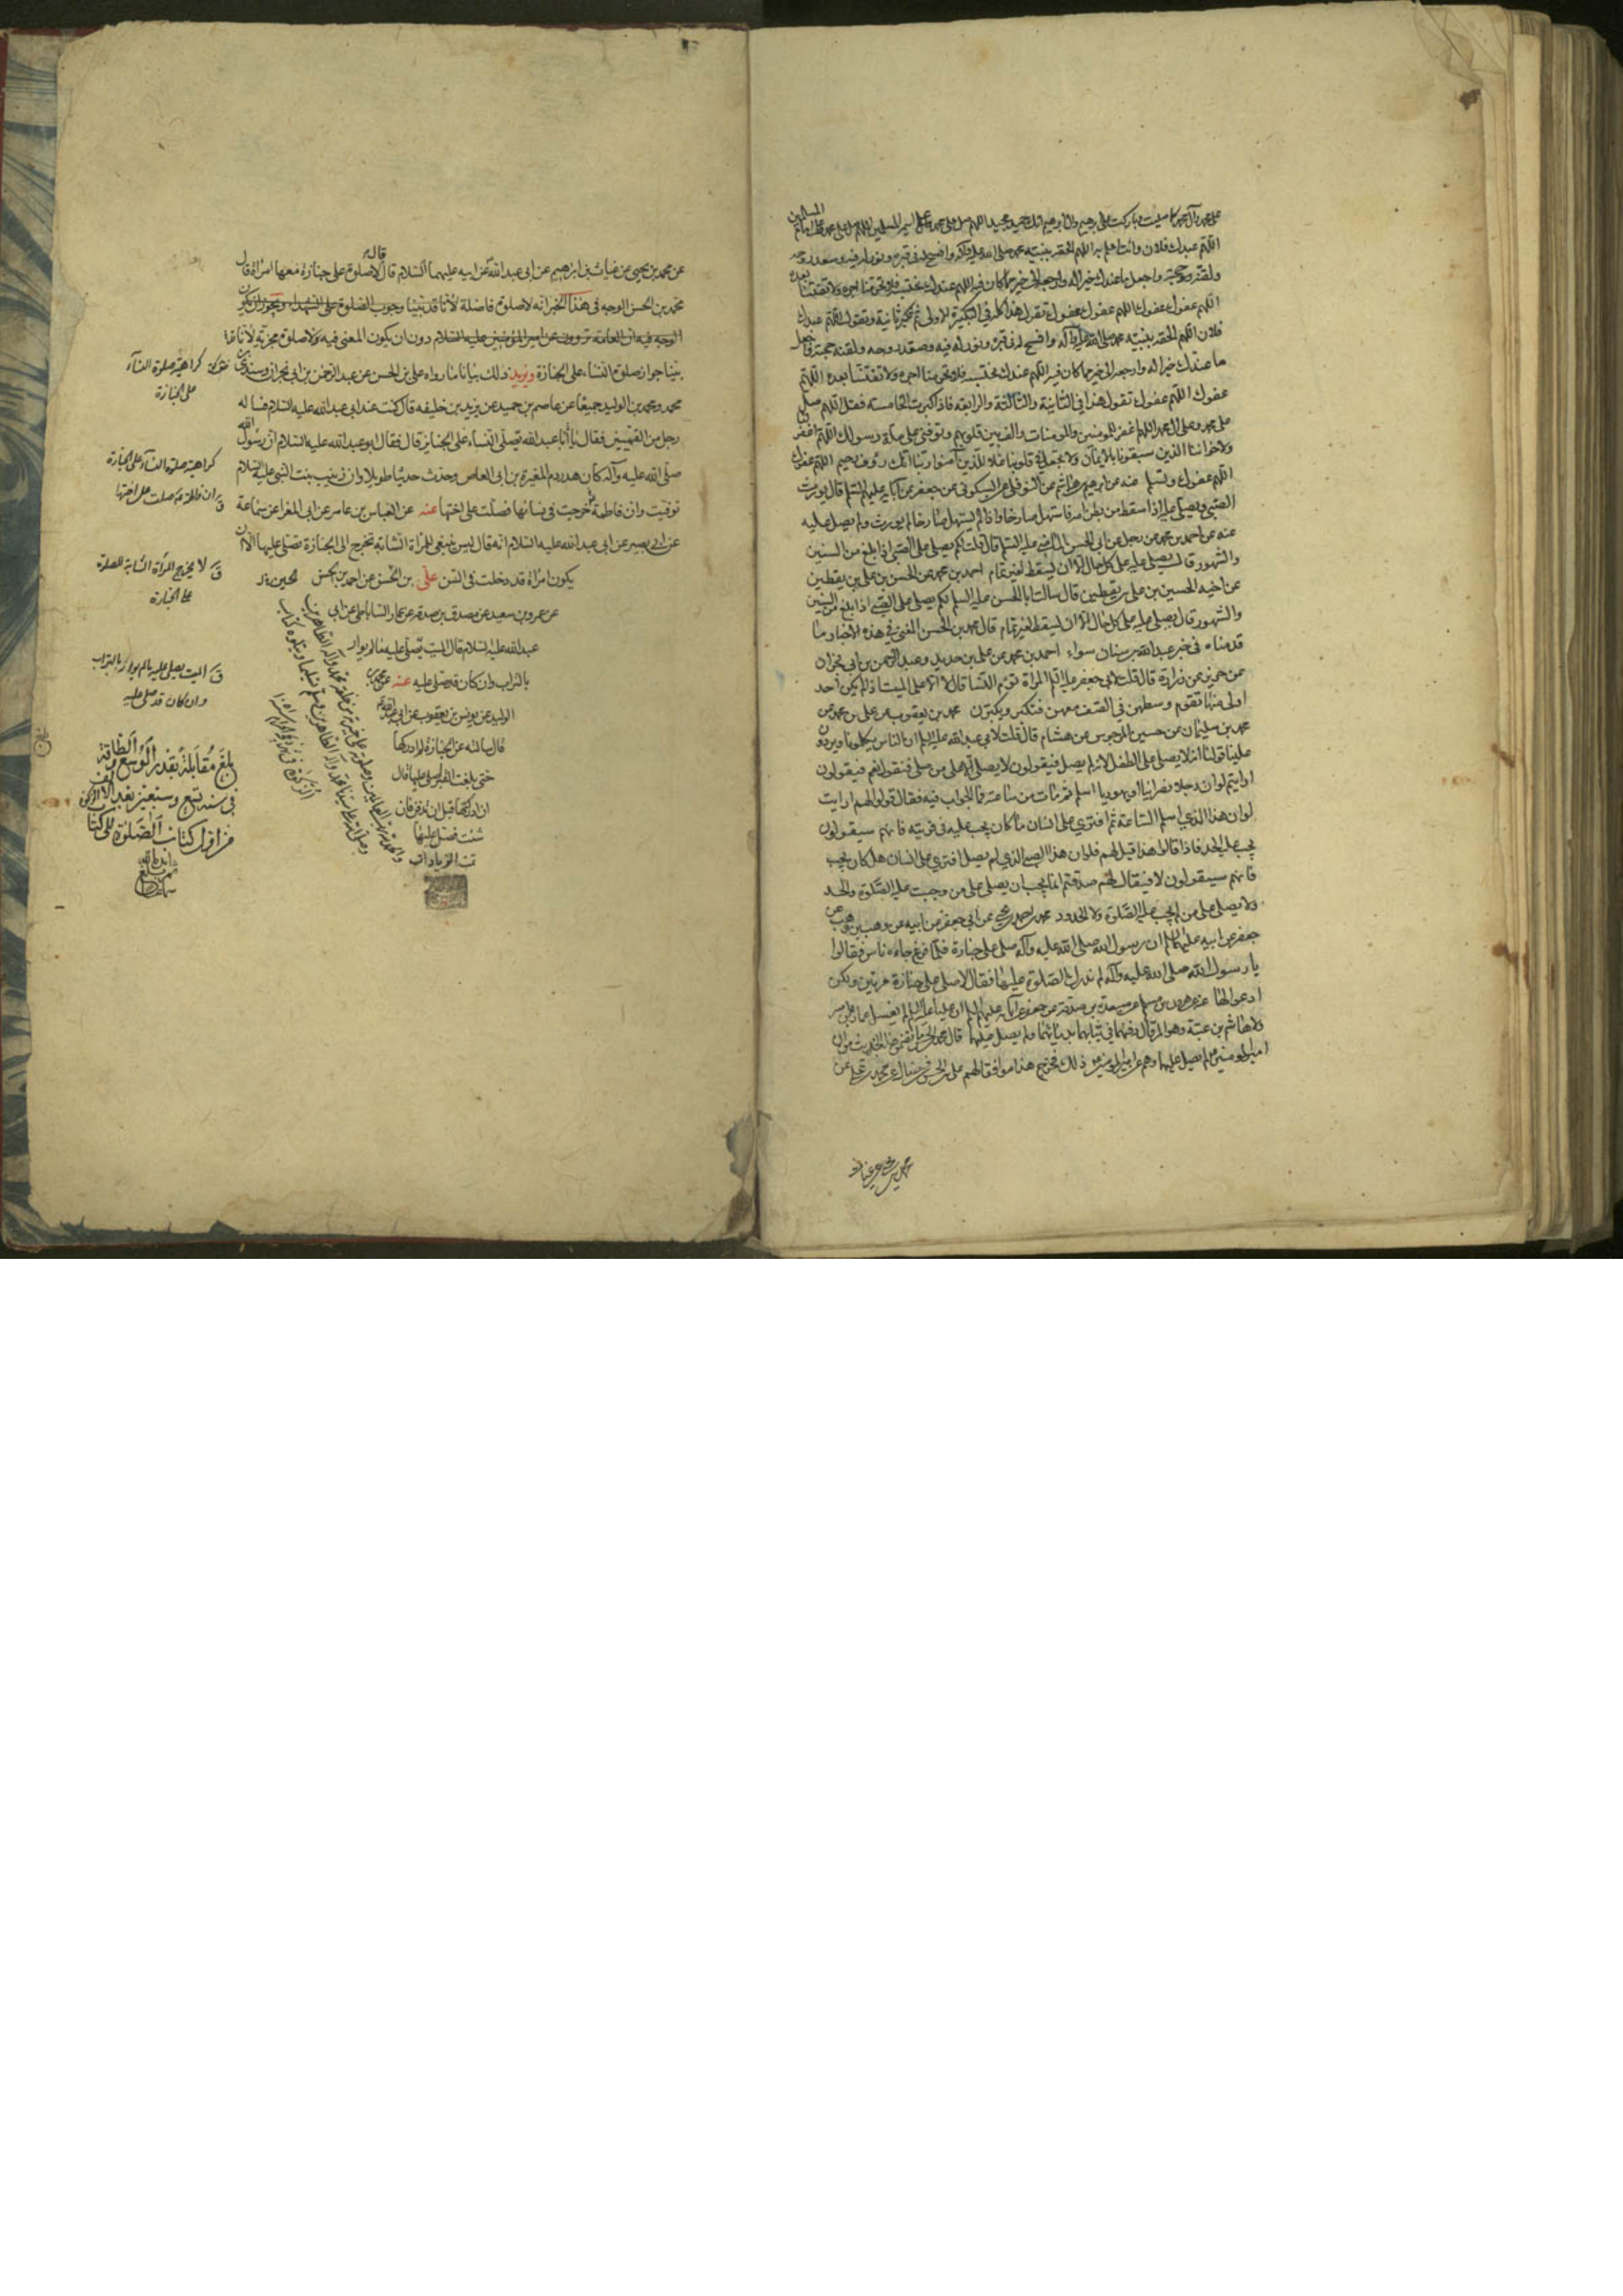 على محمد وآل محمد كما صليت وباركت على ابرهيم وال ابرهيم انك حميد مجيد اللهم صل على محمد وعلى المسلمين اللهم صل على محمد وعلى امام المسلمين
اللهم عبدك فلان وانت اعلم به اللهم الحقه بنبيه محمد صلى الله عليه وآله وافسح له في قبره ونور له فيه وصعد روحه
ولقنه حجته واجعل ما عندك خيرا له وارجعه الى خير مما كان فيه اللهم عندك نحتسبه فلا تحرمنا اجره ولا تفتنا بعده
اللهم عفوك عفوك اللهم عفوك عفوك تقول هذا كله في التكبيرة الاولى ثم تكبر ثانية وتقول اللهم عبدك
فلان اللهم الحقه بنبيه محمد صلى الله عليه وآله وافسح له في قبره ونور له فيه وصعد روحه ولقنه حجته واجعل
ما عندك خيرا له وارجعه الى خير مما كان فيه اللهم عندك نحتسبه فلا تحرمنا اجره ولا تفتنا بعده اللهم
عفوك اللهم عفوك تقول هذا في الثانية والثالثة والرابعة فاذا كبرت الخامسة فقل اللهم صل
على محمد وعلى ال محمد اللهم اغفر للمومنين والمومنات والف بين قلوبهم وتوفني على ملة رسولك اللهم اغفر لنا
ولاخواننا الذين سبقونا بالايمان ولا تجعل في قلوبنا غلا للذين آمنوا ربنا انك رؤف رحيم اللهم عفوك
اللهم عفوك وتسلم عنه عن ابرهيم بن هاشم عن النوفلي عن السكوني عن جعفر عن آبائه عليهم السلم قال يورث
الصبي ويصلى عليه اذا سقط من بطن امه فاستهل صارخا واذا لم يستهل صارخا لم يورث ولم يصل عليه
عنه عن احمد بن محمد عن رجل عن ابي الحسن الماضي عليه السلم قال قلت لكم يصلى على الصبي اذا بلغ من السنين
والشهور قال يصلى عليه على كل حال الا ان يسقط لغير تمام احمد بن محمد عن الحسن بن علي بن يقطين
عن اخيه الحسين بن علي بن يقطين قال سالت ابا الحسن عليه السلم لكم يصلى على الصبي اذا بلغ من السنين
والشهور قال يصلى عليه على كل حال الا ان يسقط لغير تمام قال محمد بن الحسن المعنى في هذه الاخبار ما
قدمناه في خبر عبد الله بن سنان سواء احمد بن محمد عن علي بن حديد وعبد الرحمن بن ابي نجران
عن حريز عن زرارة قال قلت لابي جعفر عليه السلم المراة تؤم النسا قال لا الا على الميت اذا لم يكن احد
اولى منها تقوم وسطهن في الصف معهن فتكبر ويكبرن محمد بن يعقوب عن علي بن محمد عن
محمد بن سليمان عن حسين المرجوس عن هشام قال قلت لابي عبد الله عليه السلم ان الناس يكلمونا ويردون
علينا قولنا انه لا يصلى على الطفل لانه لم يصل فيقولون لا يصلى الا على من صلى فنقول نعم فيقولون
ارايتم لو ان رجلا نصرانيا او يهوديا اسلم ثم مات من ساعته فما الجواب فيه فقال قولوا لهم ارايت
لو ان هذا الذي اسلم الساعة ثم افترى على انسان ما كان يجب عليه في فريته فانهم سيقولون
يجب عليه الحد فاذا قالوا هذا قيل لهم فلو ان هذا الصبي الذي لم يصل افترى على انسان هل كان يجب
فانهم سيقولون لا فيقال لهم صدقتم انما يجب ان يصلى على من وجبت عليه الصلوة والحد
ولا يصلى على من لم يجب عليه الصلوة ولا الحدود محمد بن احمد بن يحيى عن ابي جعفر عن ابيه عن وهب بن وهب عن
جعفر عن ابيه عليهما السلم ان رسول الله صلى الله عليه وآله صلى على جنازة فلما فرغ جاءه ناس فقالوا
يا رسول الله صلى الله عليه وآله لم ندرك الصلوة عليها فقال لا يصلى على جنازة مرتين ولكن
ادعوا لها عنه عن هرون بن مسلم عن مسعدة بن صدقة عن جعفر عن آبائه عليهم السلم ان عليا عليه السلم لم يغسل عمار بن ياسر
ولا هاشم بن عتبة وهو المرقال دفنهما في ثيابهما بدمائهما ولم يصل عليهما قال محمد بن الحسن ما تضمن هذا الحديث من ان
امير المومنين لم يصل عليهما ذلك فخرج هذا موافقا لهم على بن الحسين عن
قال
عن محمد بن يحيى عن غياث بن ابرهيم عن ابي عبد الله عن ابيه عليهما السلام قال لا صلوة على جنازة معها امراة قال
محمد بن الحسن الوجه في هذا الخبر انه لا صلوة فاضلة لأنا قد بينا وجوب الصلوة على الشهداء ويجوز ان يكون
الوجه فيه ان العامة تروون عن امير المؤمنين عليه السلام دون ان يكون المعنى فيه ولا صلوة مجزية لانا قد
بينا جواز صلوة النساء على الجنازة ونريد ذلك بيانا ما رواه علي بن الحسن عن عبد الرحمن بن ابي نجران وسندي بن
محمد ومحمد بن الوليد جميعا عن عاصم بن حميد عن يزيد بن خليفه قال كنت عند ابي عبد الله عليه السلام فساله
رجل من القميين فقال يا أبا عبد الله تصلي النساء على الجنايز قال فقال ابو عبد الله عليه السلام ان رسول الله
صلى الله عليه وآله كان هدر دم المغيرة بن ابي العاص وحدث حديثا طويلا وان زينب بنت النبي عليه السلام
توفيت وان فاطمة خرجت في نسائها فصلت على اختها عنه عن العباس بن عامر عن ابي المغرا عن سماعة
عن ابي بصير عن ابي عبد الله عليه السلام انه قال ليس ينبغي للمراة الشابة تخرج الى الجنازة تصلي عليها الا ان
يكون امراة قد دخلت في السن علي بن الحسن عن احمد بن الحسن
عن عمرو بن سعيد عن مصدق بن صدقة عن عمار الساباطي عن ابي
عبد الله عليه السلام قال الميت يصلى عليه ما لم يوار
بالتراب وان كان قد صلى عليه عنه عن محمد بن
الوليد عن يونس بن يعقوب عن ابي عبد الله
قال سالته عن الجنازة لم ادركها
حتى بلغت القبر اصلي عليها قال
ان ادركتها قبل ان تدفن فان
شئت فصل عليها
تمت الزيادات
كراهية صلوة النساء
على الجنازة
كراهية صلوة النساء على الجنازة
وان فاطمة صلت على اختها
لا يخرج المرأة الشابة للصلوة
على الجنازة
الميت يصلى عليه ما لم يوار بالتراب
وان كان قد صلى عليه
بلغ مقابلة بقدر الوسع والطاقة
في سنة تسع وسبعين بعد الالف
من اول كتاب الصلوة الى كتاب الزكوة